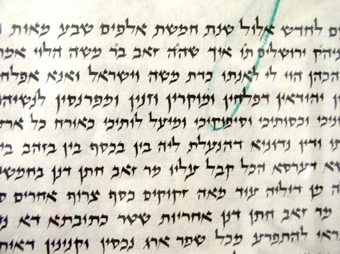 ים לחדש אלול שנת חמשת אלפים שבע מאות ו
ירושלים תו איך שהה זאב בר משה הלוי אמ
הכהן הוי לי לאנתו כדת משה וישראל ואנא אפלח
ין יהודאין דפלחין ומוקרין וזנין ומפרנסין לנשיהו
וכסותיכי וסיפוקיכי ומיעל לותיכי כאורח כל ארע
תו ודין נדוניא דהנעלת ליה בין בכסף בין בזהב בי
שא דערסא הכל קבל עליו מר זאב חתן דנן בחמשי
ה מן דיליה עוד מאה זקוקים כסף צרוף אחרים ס
מר זאב חתן דנן אחריות שטר כתובתא דא נ
ראי להתפרע מכל שפר ארג נכסין וקנינין דאית